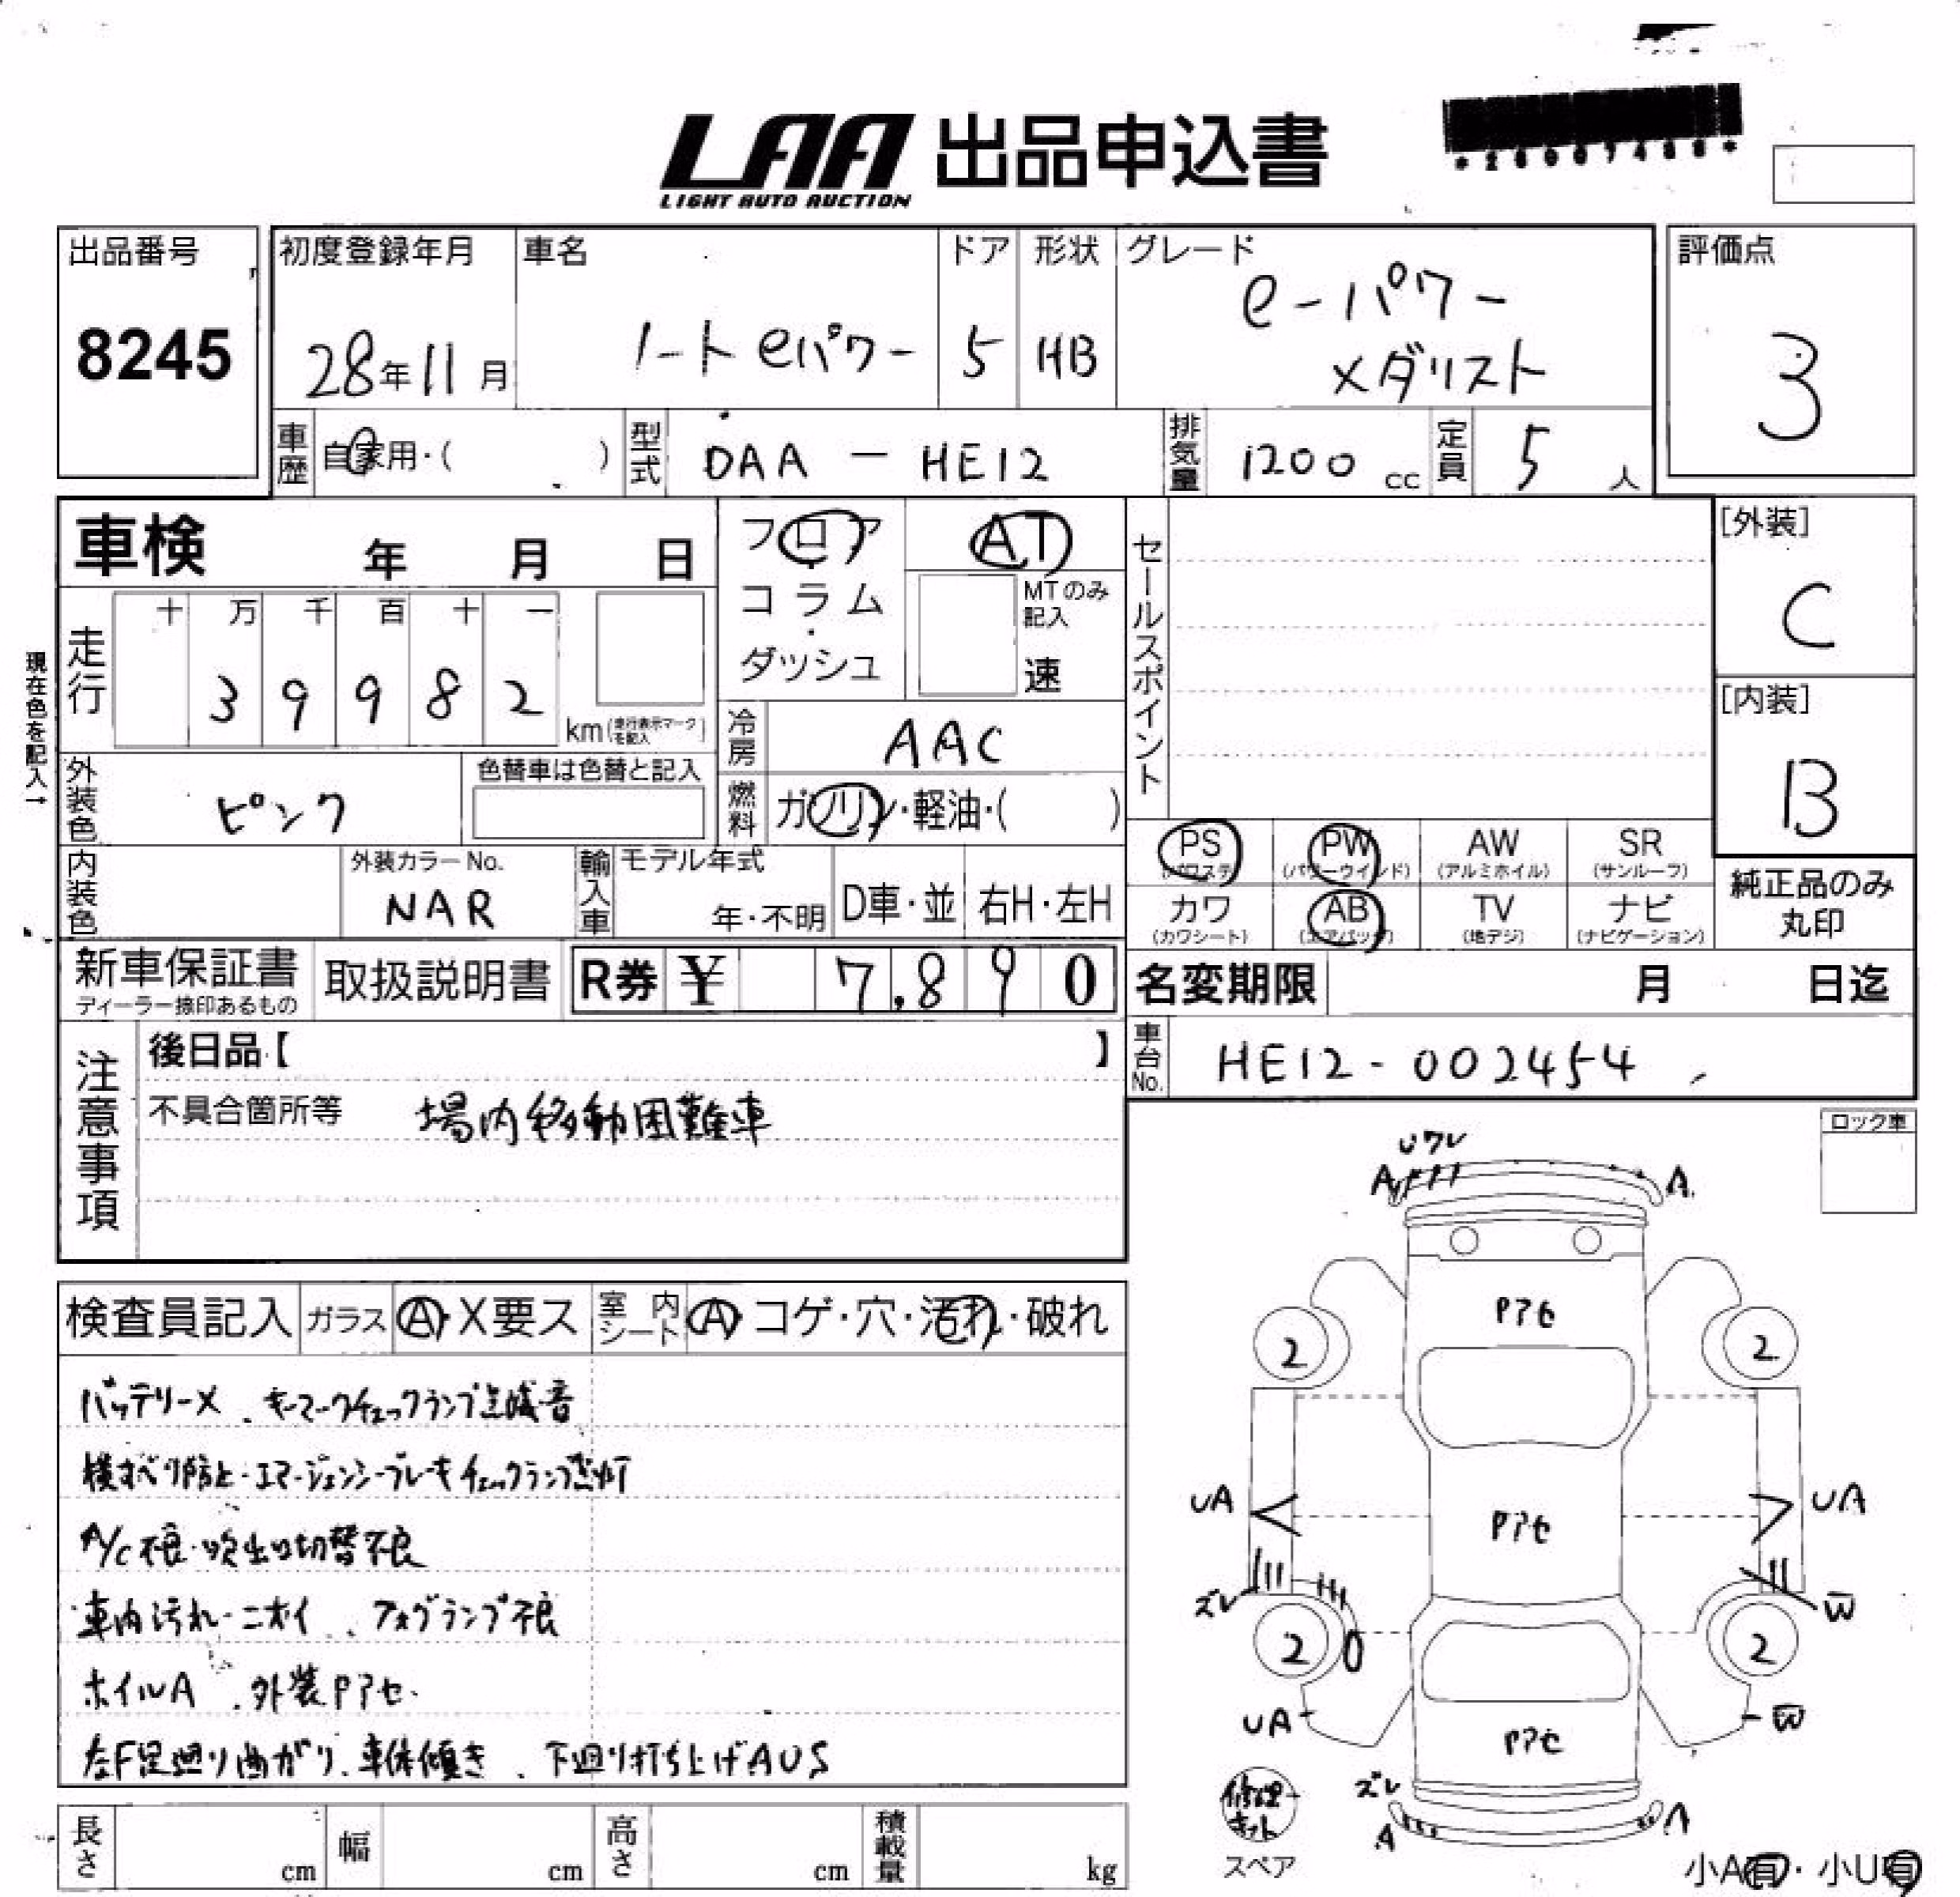 LAA 出品申込書
LIGHT AUTO AUCTION
出品番号
8245
初度登録年月
28年11月
車名
ノートeパワー
ドア
5
形状
HB
グレード
e-パワー
メダリスト
評価点
3
車歴
自家用・( )
型式
DAA - HE12
排気量
1200 cc
定員
5人
車検 年 月 日
フロア
コラム
ダッシュ
AT
MTのみ
記入
速
セールスポイント
[外装]
C
[内装]
B
現在色を記入→
走行
十 万 千 百 十 一
3 9 9 8 2
km(走行表示マークを記入)
冷房
AAC
外装色
ピンク
色替車は色替と記入
燃料
ガソリン・軽油・( )
PS
(パワステ)
PW
(パワーウインド)
AW
(アルミホイル)
SR
(サンルーフ)
カワ
(カワシート)
AB
(エアバッグ)
TV
(地デジ)
ナビ
(ナビゲーション)
純正品のみ
丸印
内装色
外装カラーNo.
NAR
輸入車
モデル年式
年・不明
D車・並
右H・左H
新車保証書
ディーラー捺印あるもの
取扱説明書
R券 ¥ 7,890
名変期限 月 日迄
車台No.
HE12-002454
注意事項
後日品【 】
不具合箇所等 場内移動困難車
ロック車
検査員記入
ガラス
A・X要ス
室内シート
A コゲ・穴・汚れ・破れ
バッテリーX、キーマークチェックランプ点滅音
横すべり防止・エマージェンシーブレーキチェックランプ点灯
A/C不良・吹出口切替不良
車内汚れ・ニオイ、フォグランプ不良
ホイルA、外装Pアセ
左F足廻り曲がり、車体傾き、下廻り打ち上げAUS
Uワレ
A A
Pアセ
2 2
UA Pアセ UA
ズレ W
2 2
UA W
Pアセ
ズレ
A A
修理キット
スペア
小A有・小U有
長さ cm
幅 cm
高さ cm
積載量 kg